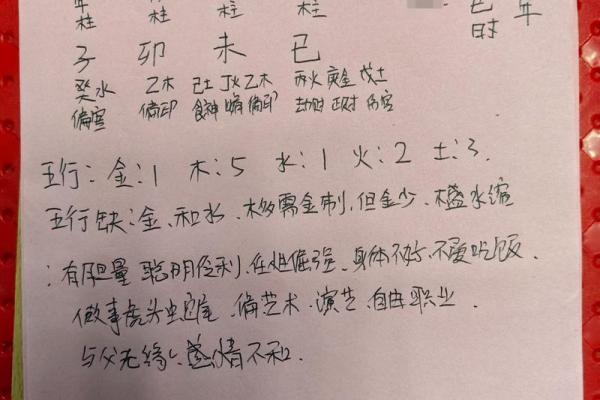 年 柱 柱 柱 巳 年
柱 时
子 卯 未 巳
癸水 乙木 己土 丁火 乙木 丙火 庚金 戊土
偏官 偏印 食神 偏印 劫财 正财 伤官
五行：金：1 木：5 水：1 火：2 土：3.
五行缺：金、和水、木多需金制，但金少、木盛水缩
：有胆量 聪明伶利、任性倔强、身体不好、不爱吃饭.
做事虎头虫尾、偏艺术、演艺、自由职业.
与父无缘、感情不和.